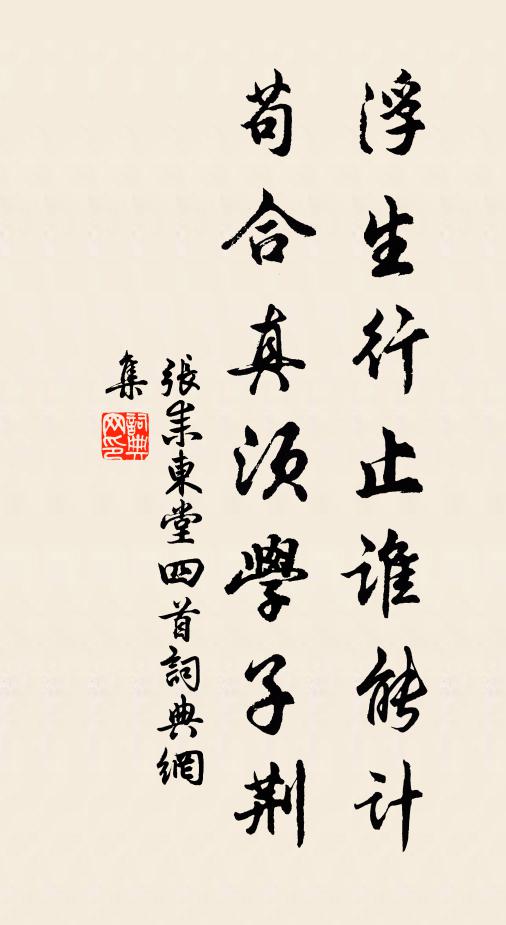 浮生行止誰能計
苟合真須學子荆
張耒東堂四首詞典網
集
詞典
网印